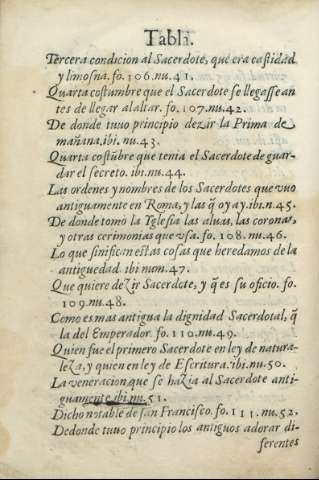 Tabla.
Tercera condicion al Sacerdote, que era castidad
y limosna. fo. 106. nu. 41.
Quarta costumbre que el Sacerdote se llegasse an
tes de llegar al altar. fo. 107. nu. 42.
De donde tuuo principio dezir la Prima de
mañana. ibi. nu. 43.
Quarta costūbre que tenia el Sacerdote de guar-
dar el secreto. ibi. nu. 44.
Las ordenes y nombres de los Sacerdotes que vuo
antiguamente en Roma, y las q̃ oy ay. ibi. n. 45.
De donde tomò la Yglesia las aluas, las coronas,
y otras cerimonias que vsa. fo. 108. nu. 46.
Lo que sinifican estas cosas que heredamos de la
antiguedad. ibi num. 47.
Que quiere dezir Sacerdote, y q̃ es su oficio. fo.
109. nu. 48.
Como es mas antigua la dignidad Sacerdotal, q̃
la del Emperador. fo. 110. nu. 49.
Quien fue el primero Sacerdote en ley de natura-
leza, y quien en ley de Escritura. ibi. nu. 50.
La veneracion que se hazia al Sacerdote anti-
guamente. ibi. nu. 51.
Dicho notable de san Francisco. fo. 111. nu. 52.
De donde tuuo principio los antiguos adorar di-
ferentes